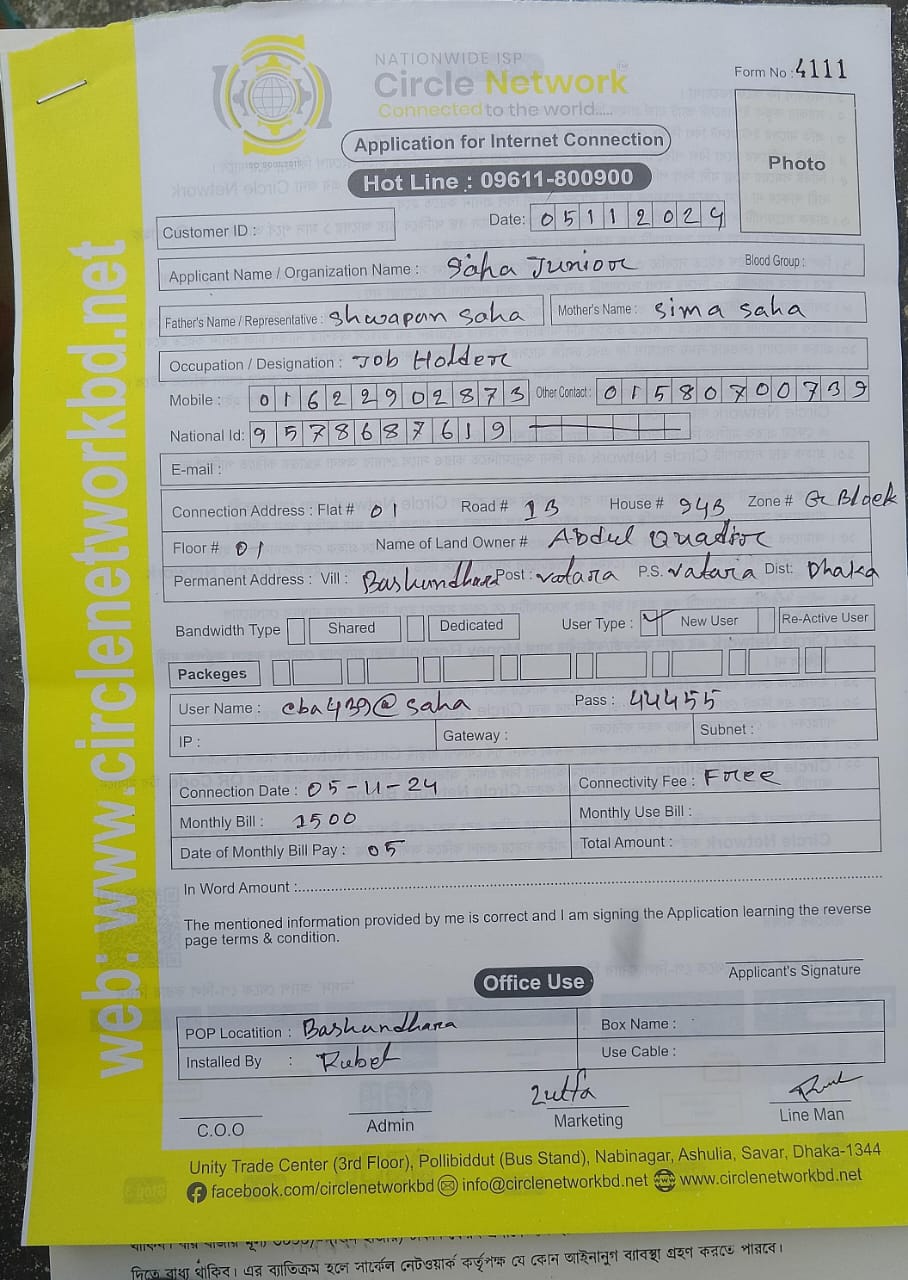 NATIONWIDE ISP
Circle Network
Connected to the world.....
Form No : 4111
Application for Internet Connection
Photo
Hot Line : 09611-800900
Customer ID :
Date: 05112024
Applicant Name / Organization Name : Saha Junior
Blood Group :
Father's Name / Representative : Shwapan Saha
Mother's Name : Sima Saha
Occupation / Designation : Job Holder
Mobile : 01622902873 Other Contact : 01580700739
National Id: 9578687619
E-mail :
Connection Address : Flat # 01 Road # 13 House # 943 Zone # G Block
Floor # 01 Name of Land Owner # Abdul Quadir
Permanent Address : Vill : Bashundhara Post : vatara P.S. vatara Dist: Dhaka
Bandwidth Type Shared Dedicated User Type : ✓ New User Re-Active User
Packeges
User Name : cba439@saha Pass : 44455
IP : Gateway : Subnet :
Connection Date : 05-11-24 Connectivity Fee : Free
Monthly Bill : 1500 Monthly Use Bill :
Date of Monthly Bill Pay : 05 Total Amount :
In Word Amount :
The mentioned information provided by me is correct and I am signing the Application learning the reverse
page terms & condition.
Applicant's Signature
Office Use
POP Locatition : Bashundhara Box Name :
Installed By : Rubel Use Cable :
C.O.O Admin Marketing Line Man
Unity Trade Center (3rd Floor), Pollibiddut (Bus Stand), Nabinagar, Ashulia, Savar, Dhaka-1344
facebook.com/circlenetworkbd info@circlenetworkbd.net www.circlenetworkbd.net
web: www.circlenetworkbd.net
দিতে বাধ্য থাকিব। এর ব্যতিক্রম হলে সার্কেল নেটওয়ার্ক কর্তৃপক্ষ যে কোন আইনানুগ ব্যাবস্থা গ্রহণ করতে পারবে।